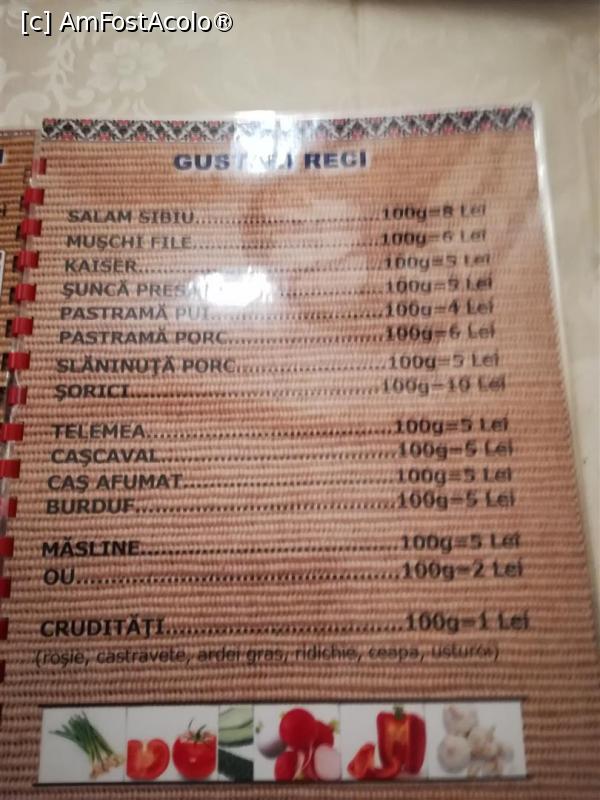 [c] AmFostAcolo®
RECI
SALAM SIBIU....................100g=8 Lei
MUŞCHI FILE....................100g=6 Lei
KAISER..........................100g=5 Lei
ŞUNCĂ 100g=5 Lei
PASTRAMĂ PUI....................100g=4 Lei
PASTRAMĂ PORC..................100g=6 Lei
SLĂNINUŢĂ PORC.................100g=5 Lei
ŞORICI..........................100g=10 Lei
TELEMEA.........................100g=5 Lei
CAŞCAVAL........................100g=5 Lei
CAŞ AFUMAT.....................100g=5 Lei
BURDUF..........................100g=5 Lei
MĂSLINE.........................100g=5 Lei
OU..............................100g=2 Lei
CRUDITĂŢI.......................100g=1 Lei
(roşie, castravete, ardei gras, ridichie, ceapa,